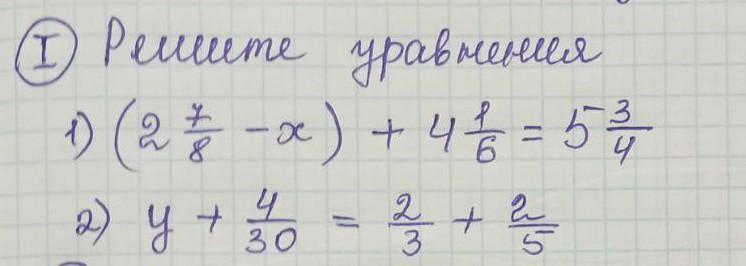 I Решите уравнения
1) (2 7/8 - x) + 4 1/6 = 5 3/4
2) y + 4/30 = 2/3 + 2/5